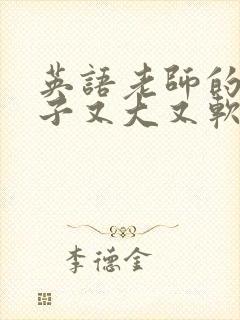 英語老師的
子又大又軟
李德金